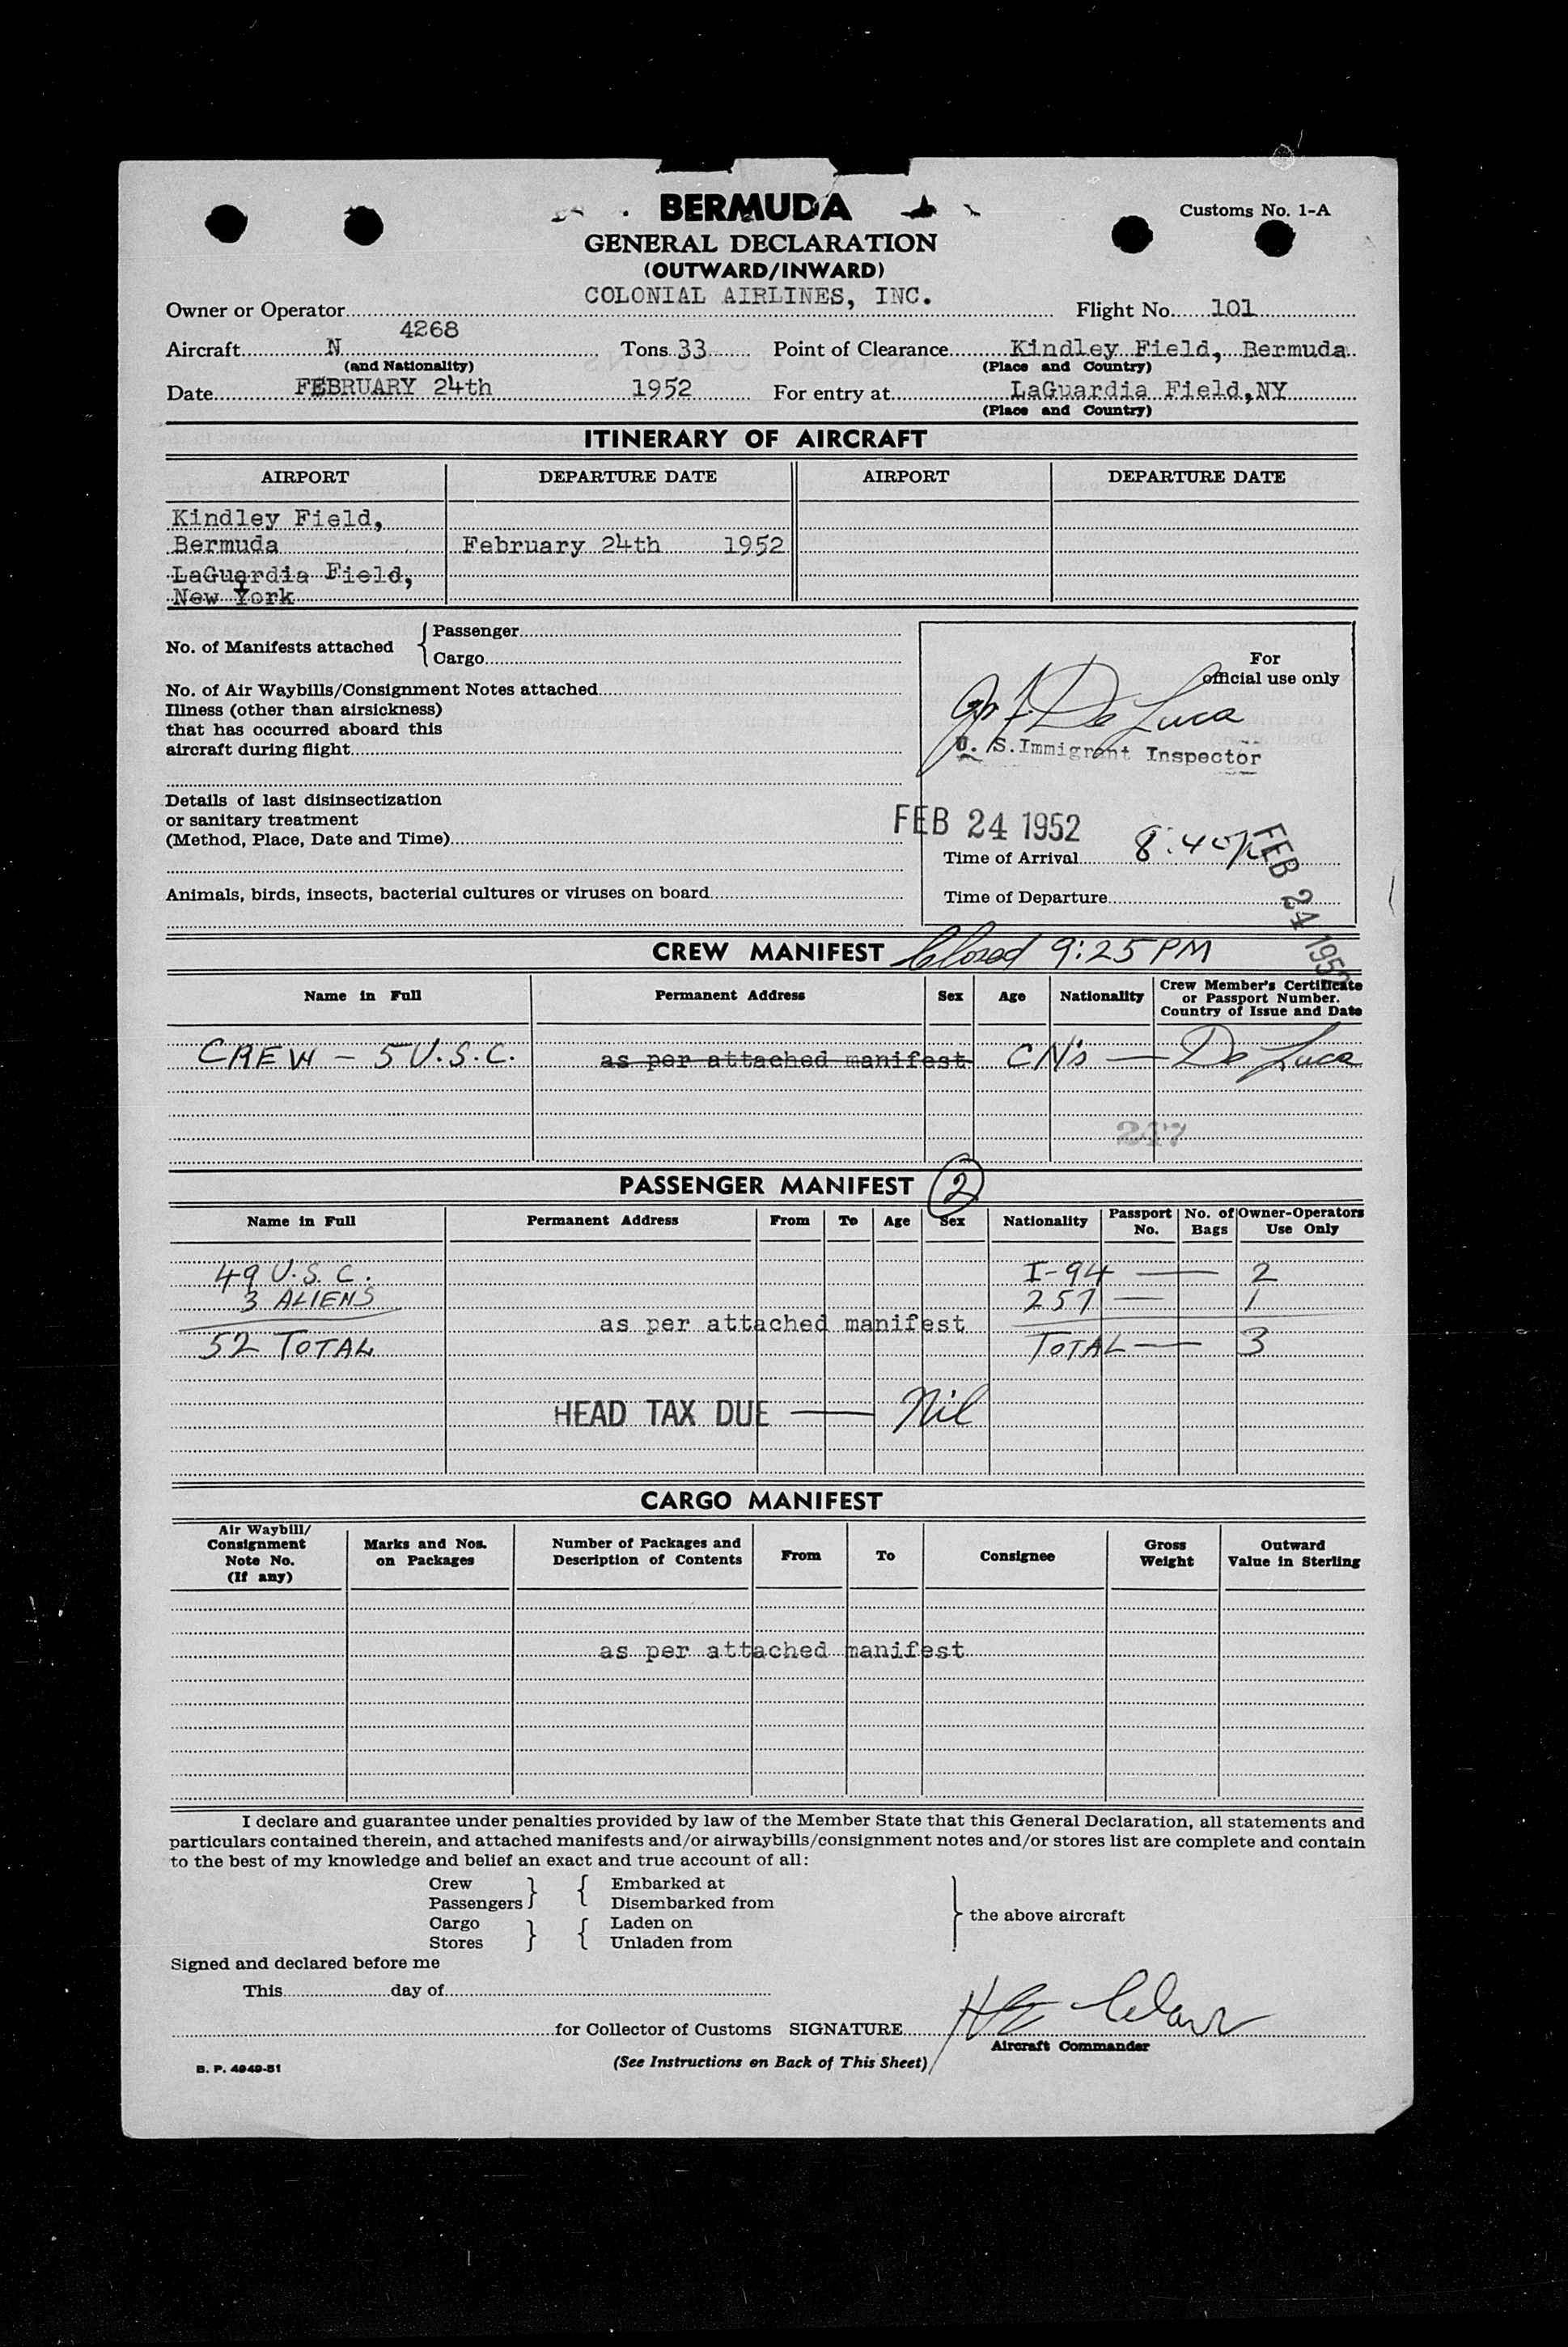 BERMUDA
Customs No. 1-A
GENERAL DECLARATION
(OUTWARD/INWARD)
COLONIAL AIRLINES, INC.
Owner or Operator Flight No. 101
4268
Aircraft N Tons 33 Point of Clearance Kindley Field, Bermuda
(and Nationality) (Place and Country)
Date FEBRUARY 24th 1952 For entry at LaGuardia Field, NY
(Place and Country)
ITINERARY OF AIRCRAFT
AIRPORT DEPARTURE DATE AIRPORT DEPARTURE DATE
Kindley Field,
Bermuda February 24th 1952
LaGuardia Field,
New York
No. of Manifests attached { Passenger
Cargo
No. of Air Waybills/Consignment Notes attached
Illness (other than airsickness)
that has occurred aboard this
aircraft during flight
Details of last disinsectization
or sanitary treatment
(Method, Place, Date and Time)
Animals, birds, insects, bacterial cultures or viruses on board
For
official use only
De Luca
U. S. Immigrant Inspector
FEB 24 1952
Time of Arrival 8:40
FEB 24 1952
Time of Departure
CREW MANIFEST Closed 9:25 PM
Name in Full Permanent Address Sex Age Nationality Crew Member's Certificate
or Passport Number.
Country of Issue and Date
CREW - 5 U.S.C. as per attached manifest CN's — De Luca
247
PASSENGER MANIFEST 2
Name in Full Permanent Address From To Age Sex Nationality Passport No. No. of Bags Owner-Operators Use Only
49 U.S.C. I-94 — 2
3 ALIENS 257 — 1
as per attached manifest
52 TOTAL TOTAL — 3
HEAD TAX DUE — Nil
CARGO MANIFEST
Air Waybill/
Consignment
Note No.
(If any)
Marks and Nos.
on Packages
Number of Packages and
Description of Contents
From To Consignee
Gross
Weight
Outward
Value in Sterling
as per attached manifest
I declare and guarantee under penalties provided by law of the Member State that this General Declaration, all statements and
particulars contained therein, and attached manifests and/or airwaybills/consignment notes and/or stores list are complete and contain
to the best of my knowledge and belief an exact and true account of all:
Crew } { Embarked at
Passengers } { Disembarked from
Cargo } { Laden on } the above aircraft
Stores } { Unladen from
Signed and declared before me
This day of
for Collector of Customs SIGNATURE
Aircraft Commander
B. P. 4949-51
(See Instructions on Back of This Sheet)